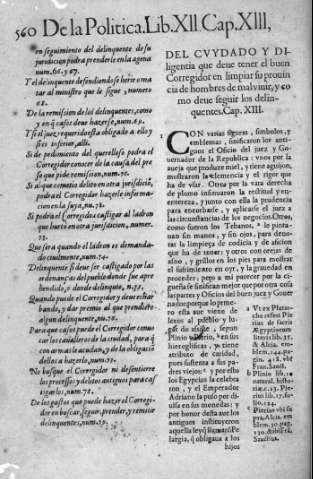 560 De la Politica. Lib. XII Cap. XIII,
en seguimiento del delinquente de su
juridicion podra prenderle en la agena
num. 66. y 67.
Y el delinquente defendiendose herir o ma
tar al ministro que le sigue, numero
68.
De la remision de los delinquentes, como
y en q̃ casos deue hazerse, num. 69.
Y si el juez requerido està obligado a ello y
si es inferior, alli.
Si de pedimento del querelloso podra el
Corregidor conocer de la causa del pre
so que pide remission, num. 70.
Si al que cometio delito en otra jurisdició,
podrà el Corregidor hazerle informa-
cion en la suya, nu. 72.
Si podrà el Corregidor castigar al ladron
que hurtò en otra jurisdicion, numer.
73.
Que sera quando el ladron es demanda-
do ciuilmente, num. 74.
Delinquente si deue ser castigado por las
ordenanças del pueblo donde fue apre
hendido, o donde delinquio, n. 75.
Quando puede el Corregidor y deue echar
bando, y dar premio al que prendiere
algun delinquente, num. 76.
Para que casos puede el Corregidor conuo
car los caualleros de la ciudad, para q̃
con armas le acudan, y de la obligació
dellos a hazerlo, num. 77.
No busque el Corregidor ni desentierre
los processos y delitos antiguos para cas
tigarlos, num. 78.
De los gastos que puede hazer el Corregi-
dor en buscar, seguir, prender, y remitir
delinquentes, num. 79.
DEL CVYDADO Y DI-
ligentia que deue tener el buen
Corregidor en limpiar su prouin
cia de hombres de mal viuir, y co
mo deue seguir los delin-
quentes. Cap. XIII.
1
CON varias figuras, simbolos, y
emblemas, significaron los anti-
guos el Oficio del juez y Go-
uernador de la Republica: vnos por la
aueja que produce miel, y tiene aguijon,
mostraron la clemencia y el rigor que
ha de vsar. Otros por la vara derecha
de plomo insinuaron la rectitud y en-
tereza, y junto con ella la prudencia
para encorbarse, y aplicarse el juez a
las circunstancias de los negocios. Otros,
como fueron los Tebanos, a lo pinta-
uan sin manos, y sin ojos, para deno-
tar la limpieza de codicia y de aficion
que ha de tener: y otros con orejas de
asno, y grillos en los pies para mostrar
el sufrimiento en oyr, y la grauedad en
proceder; pero a mi parecer por la ci-
gueña se sinifican mejor que por otra cosa
las partes y Oficio del buen juez y Gouer
nador porque lo prime-
ro esta aue viene de
lexos al pueblo y lu-
gar do assiste, segun
Plinio b y Pierio, c en sus
hieroglificas, y tiene
atributo de caridad,
pues sustenta a sus pa-
dres viejos: y por esto
los Egypcios la celebra
ron, y el Emperador
Adriano la puso por di-
uisa en sus monedas: y
por honor desta aue los
antiguos instituyeron
aquella ley q̃ llamarõ Pe
largia, q̃ obligaua a los
hijos
a Vt ex Plutar-
cho refert Pie
rius de sacris
Ægyptiorum
literis lib. 35.
& Alcia. em-
blem. 144. pa-
gin. 428. vbi
Fran. Sanct.
b Plinio lib. 10.
natural. histo-
riæ c. 23. Pie-
rius lib. 17. fo-
lio 124.
c Pierius vbi su-
pra, Alcia. em
blem. 30. pag.
130. & ibi Frã.
Sanctius.